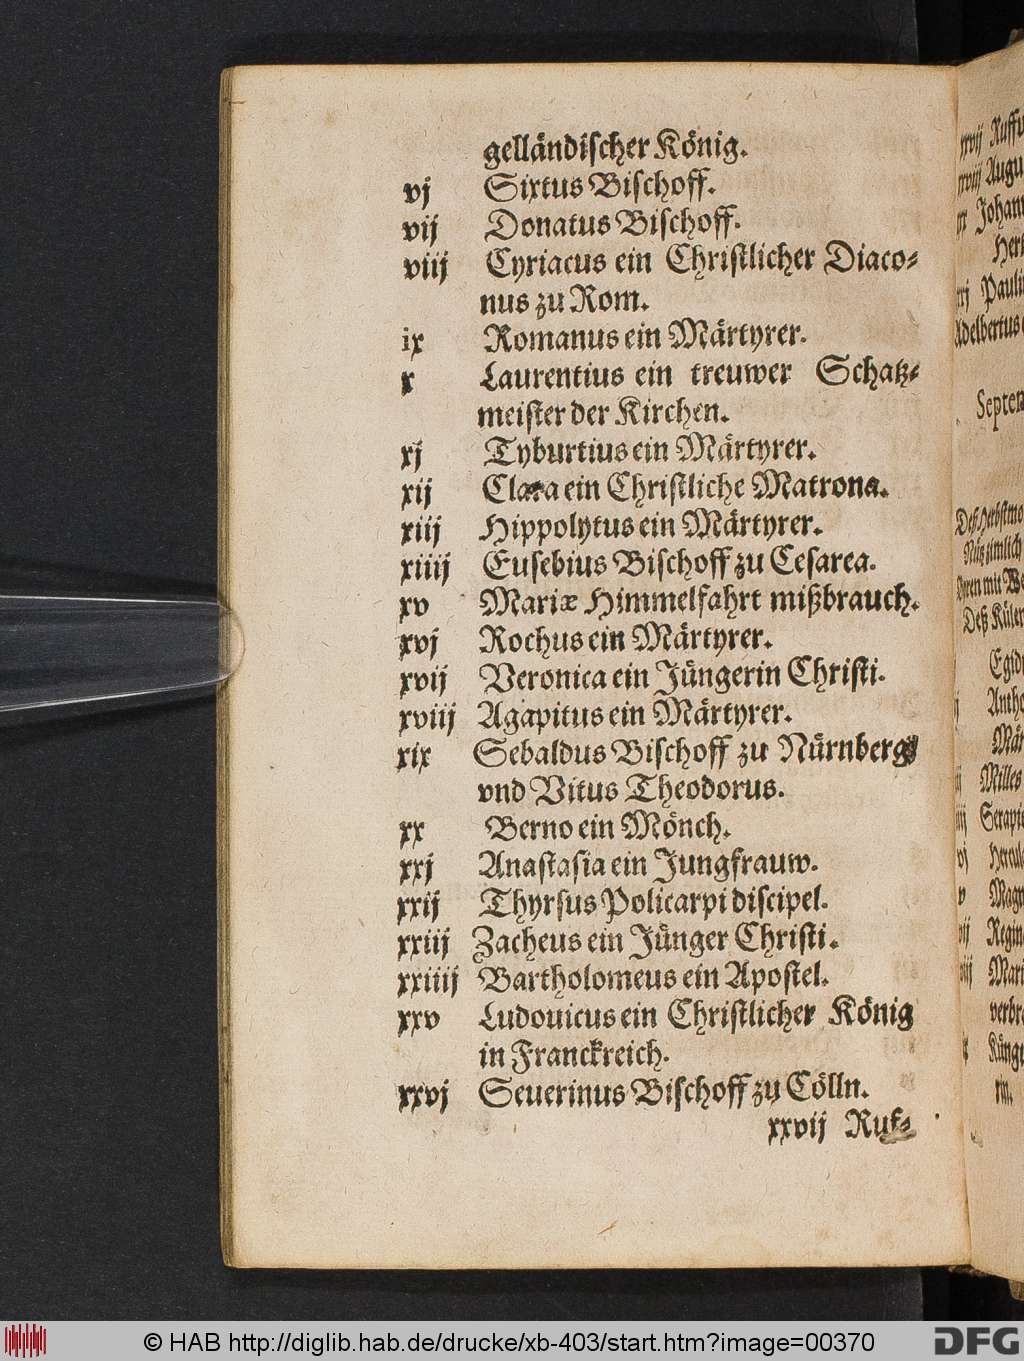 gelländischer König.
vj Sixtus Bischoff.
vij Donatus Bischoff.
viij Cyriacus ein Christlicher Diaco-
nus zu Rom.
ix Romanus ein Märtyrer.
x Laurentius ein treuwer Schatz-
meister der Kirchen.
xj Tyburtius ein Märtyrer.
xij Clara ein Christliche Matrona.
xiij Hippolytus ein Märtyrer.
xiiij Eusebius Bischoff zu Cesarea.
xv Mariæ Himmelfahrt mißbrauch.
xvj Rochus ein Märtyrer.
xvij Veronica ein Jüngerin Christi.
xviij Agapitus ein Märtyrer.
xix Sebaldus Bischoff zu Nürnberg
vnd Vitus Theodorus.
xx Berno ein Mönch.
xxj Anastasia ein Jungfrauw.
xxij Thyrsus Policarpi discipel.
xxiij Zacheus ein Jünger Christi.
xxiiij Bartholomeus ein Apostel.
xxv Ludouicus ein Christlicher König
in Franckreich.
xxvj Seuerinus Bischoff zu Cölln.
xxvij Ruf-
xxvij Ruffu
xxviij Augu
Johann
Her
Pauli
Adelbertus
Septem
Deß Herbstmo
Nütz zimlich
Byren mit We
Deß Küler
Egid
Antho
Mär
Milles
Serapi
Hercule
v Magn
Regin
Mari
verbr
Küng
rin.
© HAB http://diglib.hab.de/drucke/xb-403/start.htm?image=00370
DFG